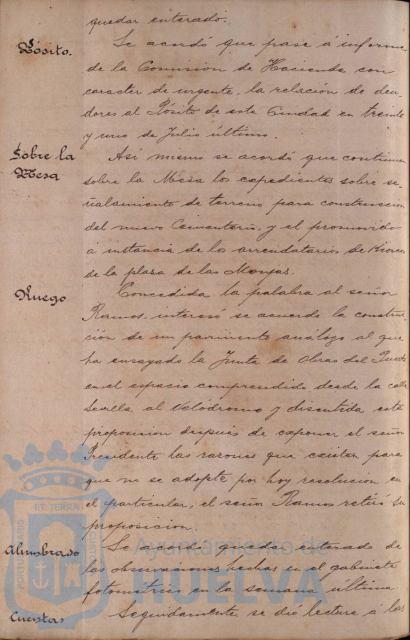 quedar enterado.
Pósito. Se acordó que pase á informe
de la Comision de Hacienda con
caracter de urgente, la relación de deu-
dores al Pósito de esta Ciudad en treinta
y uno de Julio último.
Sobre la Mesa Así mismo se acordó que continuen
sobre la Mesa los espedientes sobre se-
ñalamiento de terreno para construccion
del nuevo Cementerio, y el promovido
á instancia de los arrendatarios de Kioscos
de la plaza de las Monjas.
Ruego Concedida la palabra al señor
Ramos interesó se acuerde la construc-
cion de un pavimento análogo al que
ha ensayado la Junta de Obras del Puerto
en el espacio comprendido desde la calle
Sevilla al Velódromo y discutida esta
proposicion después de esponer el señor
Presidente las razones que existen para
que no se adopte por hoy resolucion en
el particular, el señor Ramos retiró su
proposicion.
Alumbrado Se acordó quedar enterado de
las observaciones hechas en el gabinete
fotométrico en la semana última.
Cuentas Seguidamente se dió lectura á las
Ayuntamiento de
HUELVA